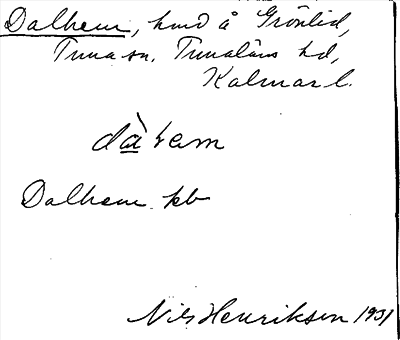 Dalhem, hmd å Grönlid,
Tuna sn. Tunaläns hd,
Kalmar l.
dàhem
Dalhem kb
Nils Henrikson 1931